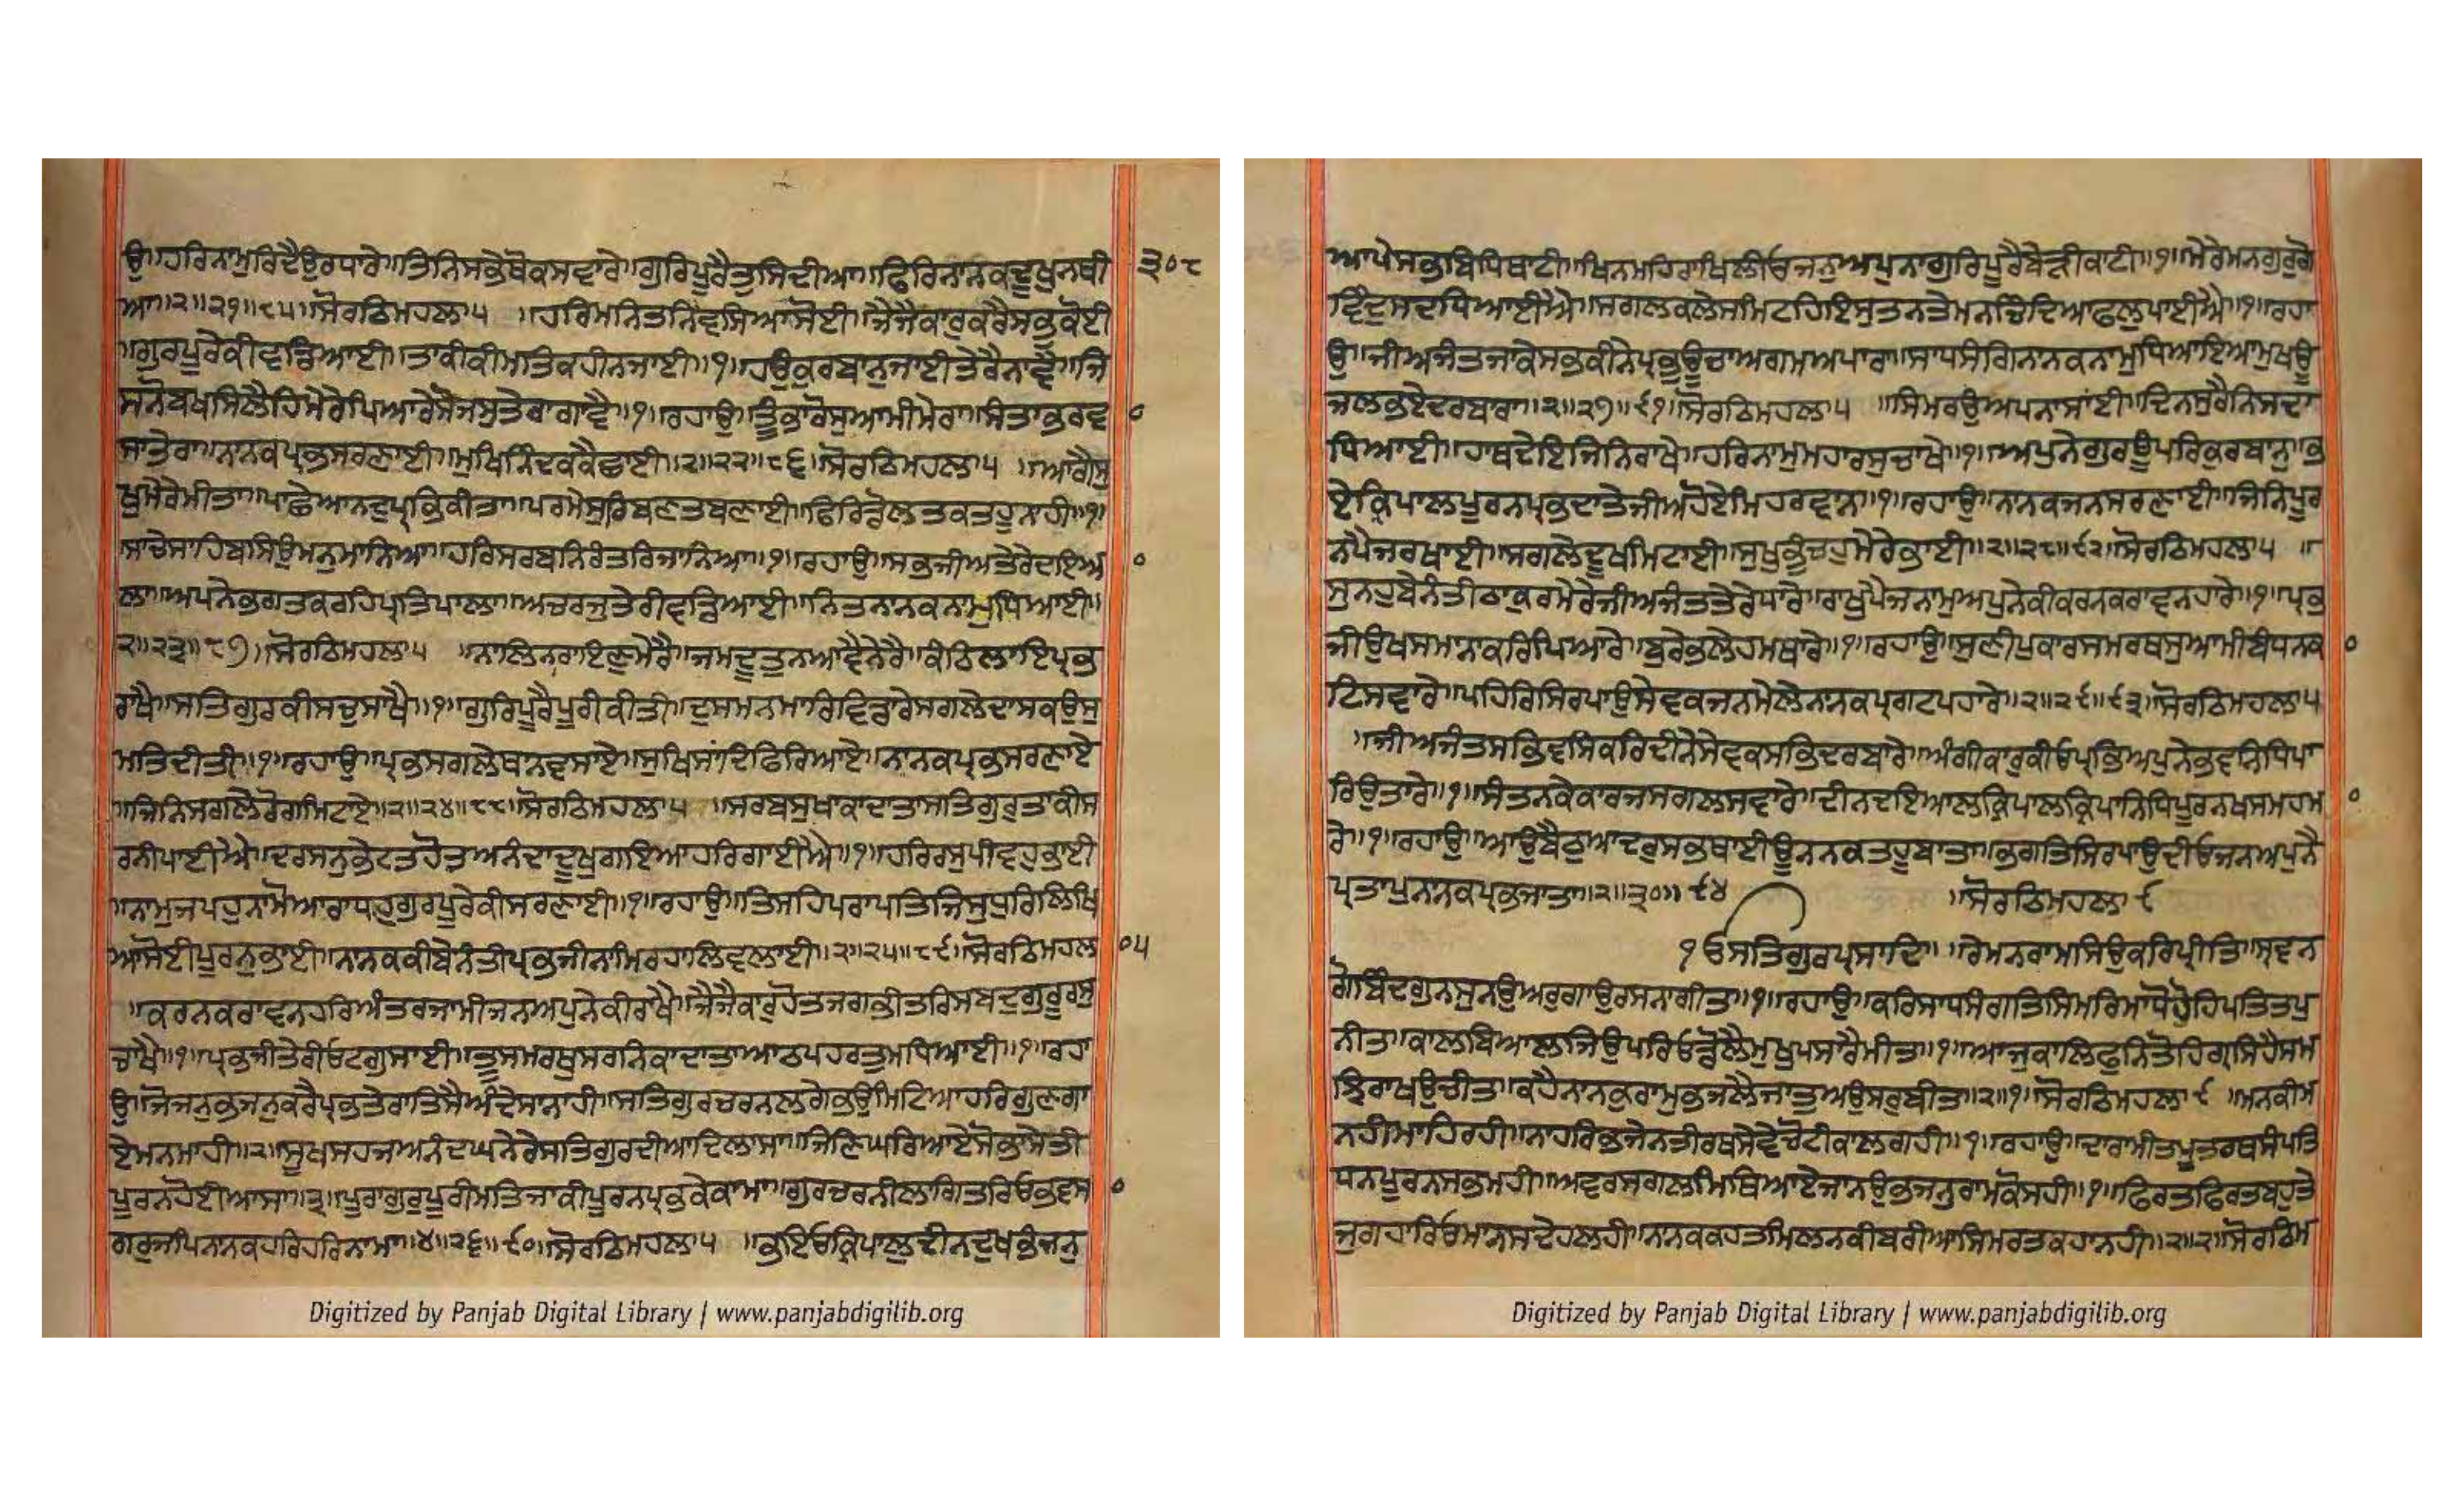 ਉ॥ਹਰਿਨਾਮੁਰਿਦੈਉਰਧਾਰੇ॥ਤਿਨਿਸਭੇਥੋਕਸਵਾਰੇ॥ਗੁਰਿਪੂਰੈਤੁਸਿਦੀਆ॥ਫਿਰਿਨਾਨਕਦੂਖੁਨਥੀ ੩੦੮
ਆ॥੨॥੨੧॥੮੫॥ਸੋਰਠਿਮਹਲਾ੫ ॥ਹਰਿਮਨਿਤਨਿਵਸਿਆਸੋਈ॥ਜੈਜੈਕਾਰੁਕਰੈਸਭੁਕੋਈ
॥ਗੁਰਪੂਰੇਕੀਵਡਿਆਈ॥ਤਾਕੀਕੀਮਤਿਕਹੀਨਜਾਈ॥੧॥ਹਉਕੁਰਬਾਨੁਜਾਈਤੇਰੈਨਾਵੈ॥ਜਿ
ਸਨੋਬਖਸਿਲੈਹਿਮੇਰੇਪਿਆਰੇਸੋਜਸੁਤੇਰਾਗਾਵੈ॥੧॥ਰਹਾਉ॥ਤੂੰਭਾਰੋਸੁਆਮੀਮੇਰਾ॥ਸੰਤਾਭਰਵ
ਸਾਤੇਰਾ॥ਨਾਨਕਪ੍ਰਭਸਰਣਾਈ॥ਮੁਖਿਨਿੰਦਕਕੈਛਾਈ॥੨॥੨੨॥੮੬॥ਸੋਰਠਿਮਹਲਾ੫ ॥ਆਗੈਸੁ
ਖੁਮੇਰੇਮੀਤਾ॥ਪਾਛੇਆਨਦੁਪ੍ਰਭਿਕੀਤਾ॥ਪਰਮੇਸੁਰਿਬਣਤਬਣਾਈ॥ਫਿਰਿਡੋਲਤਕਤਹੂਨਾਹੀ॥੧॥
ਸਾਚੇਸਾਹਿਬਸਿਉਮਨੁਮਾਨਿਆ॥ਹਰਿਸਰਬਨਿਰੰਤਰਿਜਾਨਿਆ॥੧॥ਰਹਾਉ॥ਸਭਜੀਅਤੇਰੇਦਇਆ
ਲਾ॥ਅਪਨੇਭਗਤਕਰਹਿਪ੍ਰਤਿਪਾਲਾ॥ਅਚਰਜੁਤੇਰੀਵਡਿਆਈ॥ਨਿਤਨਾਨਕਨਾਮੁਧਿਆਈ॥
੨॥੨੩॥੮੭॥ਸੋਰਠਿਮਹਲਾ੫ ॥ਨਾਲਿਨਰਾਇਣੁਮੇਰੈ॥ਜਮਦੂਤੁਨਆਵੈਨੇਰੈ॥ਕੰਠਿਲਾਇਪ੍ਰਭ
ਰਾਖੈ॥ਸਤਿਗੁਰਕੀਸਚੁਸਾਖੈ॥੧॥ਗੁਰਿਪੂਰੈਪੂਰੀਕੀਤੀ॥ਦੁਸਮਨਮਾਰਿਵਿਡਾਰੇਸਗਲੇਦਾਸਕਉਸੁ
ਮਤਿਦੀਤੀ॥੧॥ਰਹਾਉ॥ਪ੍ਰਭਸਗਲੇਥਾਨਵਸਾਏ॥ਸੁਖਿਸਾਂਦਿਫਿਰਿਆਏ॥ਨਾਨਕਪ੍ਰਭਸਰਣਾਏ
॥ਜਿਨਿਸਗਲੇਰੋਗਮਿਟਾਏ॥੨॥੨੪॥੮੮॥ਸੋਰਠਿਮਹਲਾ੫ ॥ਸਰਬਸੁਖਾਕਾਦਾਤਾਸਤਿਗੁਰੁਤਾਕੀਸ
ਰਨੀਪਾਈਐ॥ਦਰਸਨੁਭੇਟਤਹੋਤਅਨੰਦਾਦੂਖੁਗਇਆਹਰਿਗਾਈਐ॥੧॥ਹਰਿਰਸੁਪੀਵਹੁਭਾਈ
॥ਨਾਮੁਜਪਹੁਨਾਮੋਆਰਾਧਹੁਗੁਰਪੂਰੇਕੀਸਰਣਾਈ॥੧॥ਰਹਾਉ॥ਤਿਸਹਿਪਰਾਪਤਿਜਿਸੁਧੁਰਿਲਿਖਿ
ਆਸੋਈਪੂਰਨੁਭਾਈ॥ਨਾਨਕਕੀਬੇਨੰਤੀਪ੍ਰਭਜੀਨਾਮਿਰਹਾਲਿਵਲਾਈ॥੨॥੨੫॥੮੯॥ਸੋਰਠਿਮਹਲਾ ੫
॥ਕਰਨਕਰਾਵਨਹਰਿਅੰਤਰਜਾਮੀਜਨਅਪੁਨੇਕੀਰਾਖੈ॥ਜੈਜੈਕਾਰੁਹੋਤੁਜਗਭੀਤਰਿਸਬਦੁਗੁਰੂਰਸੁ
ਚਾਖੈ॥੧॥ਪ੍ਰਭਜੀਤੇਰੀਓਟਗੁਸਾਈ॥ਤੂਸਮਰਥੁਸਰਨਿਕਾਦਾਤਾਆਠਪਹਰਤੁਮਧਿਆਈ॥੧॥ਰਹਾ
ਉ॥ਜੋਜਨੁਭਜਨੁਕਰੇਪ੍ਰਭਤੇਰਾਤਿਸੈਅੰਦੇਸਾਨਾਹੀ॥ਸਤਿਗੁਰਚਰਨਲਗੇਭਉਮਿਟਿਆਹਰਿਗੁਣਗਾ
ਏਮਨਮਾਹੀ॥੨॥ਸੂਖਸਹਜਆਨੰਦਘਨੇਰੇਸਤਿਗੁਰਦੀਆਦਿਲਾਸਾ॥ਜਿਣਿਘਰਿਆਏਸੋਭਾਸੇਤੀ
ਪੂਰਨਹੋਈਆਸਾ॥੩॥ਪੂਰਾਗੁਰੁਪੂਰੀਮਤਿਜਾਕੀਪੂਰਨਪ੍ਰਭਕੇਕਾਮਾ॥ਗੁਰਚਰਨੀਲਾਗਿਤਰਿਓਭਵਸਾ
ਗਰੁਜਪਿਨਾਨਕਹਰਿਹਰਿਨਾਮਾ॥੪॥੨੬॥੯੦॥ਸੋਰਠਿਮਹਲਾ੫ ॥ਭਇਓਕਿਰਪਾਲੁਦੀਨਦੁਖਭੰਜਨੁ
ਆਪੇਸਭਬਿਧਿਥਾਟੀ॥ਖਿਨਮਹਿਰਾਖਿਲੀਓਜਨੁਅਪੁਨਾਗੁਰਿਪੂਰੈਬੇੜੀਕਾਟੀ॥੧॥ਮੇਰੇਮਨਗੁਰਗੋ
ਵਿੰਦੁਸਦਧਿਆਈਐ॥ਸਗਲਕਲੇਸਮਿਟਹਿਇਸੁਤਨਤੇਮਨਚਿੰਦਿਆਫਲੁਪਾਈਐ॥੧॥ਰਹਾ
ਉ॥ਜੀਅਜੰਤਜਾਕੇਸਭਕੀਨੇਪ੍ਰਭੁਊਚਾਅਗਮਅਪਾਰਾ॥ਸਾਧਸੰਗਿਨਾਨਕਨਾਮੁਧਿਆਇਆਮੁਖਊ
ਜਲਭਏਦਰਬਾਰਾ॥੨॥੨੭॥੯੧॥ਸੋਰਠਿਮਹਲਾ੫ ॥ਸਿਮਰਉਅਪਨਾਸਾਂਈ॥ਦਿਨਸੁਰੈਨਿਸਦਾ
ਧਿਆਈ॥ਹਾਥਦੇਇਜਿਨਿਰਾਖੇ॥ਹਰਿਨਾਮੁਮਹਾਰਸੁਚਾਖੇ॥੧॥ਅਪੁਨੇਗੁਰਊਪਰਿਕੁਰਬਾਨੁ॥ਭ
ਏਕਿਰਪਾਲਪੂਰਨਪ੍ਰਭਦਾਤੇਜੀਅਹੋਏਮਿਹਰਵਾਨ॥੧॥ਰਹਾਉ॥ਨਾਨਕਜਨਸਰਣਾਈ॥ਜਿਨਿਪੂਰ
ਨਪੈਜਰਖਾਈ॥ਸਗਲੇਦੂਖਮਿਟਾਈ॥ਸੁਖੁਭੁੰਚਹੁਮੇਰੇਭਾਈ॥੨॥੨੮॥੯੨॥ਸੋਰਠਿਮਹਲਾ੫ ॥
ਸੁਨਹੁਬੇਨੰਤੀਠਾਕੁਰਮੇਰੇਜੀਅਜੰਤਤੇਰੇਧਾਰੇ॥ਰਾਖੁਪੈਜਨਾਮੁਅਪੁਨੇਕੀਕਰਨਕਰਾਵਨਹਾਰੇ॥੧॥ਪ੍ਰਭ
ਜੀਉਖਸਮਾਨਾਕਰਿਪਿਆਰੇ॥ਬੁਰੇਭਲੇਹਮਥਾਰੇ॥੧॥ਰਹਾਉ॥ਸੁਣੀਪੁਕਾਰਸਮਰਥਸੁਆਮੀਬੰਧਨਕਾ
ਟਿਸਵਾਰੇ॥ਪਹਿਰਿਸਿਰਪਾਉਸੇਵਕਜਨਮੇਲੇਨਾਨਕਪ੍ਰਗਟਪਹਾਰੇ॥੨॥੨੯॥੯੩॥ਸੋਰਠਿਮਹਲਾ੫
॥ਜੀਅਜੰਤਸਭਿਵਸਿਕਰਿਦੀਨੇਸੇਵਕਸਭਿਦਰਬਾਰੇ॥ਅੰਗੀਕਾਰੁਕੀਓਪ੍ਰਭਿਅਪੁਨੇਭਵਨਿਧਿਪਾ
ਰਿਉਤਾਰੇ॥੧॥ਸੰਤਨਕੇਕਾਰਜਸਗਲਸਵਾਰੇ॥ਦੀਨਦਇਆਲਕ੍ਰਿਪਾਲਕ੍ਰਿਪਾਨਿਧਿਪੂਰਨਖਸਮਹਮਾ
ਰੇ॥੧॥ਰਹਾਉ॥ਆਉਬੈਠੁਆਦਰੁਸਭਥਾਈਊਨਨਕਤਹੂਬਾਤਾ॥ਭਗਤਿਸਿਰਪਾਉਦੀਓਜਨਅਪੁਨੈ
ਪ੍ਰਤਾਪੁਨਾਨਕਪ੍ਰਭਜਾਤਾ॥੨॥੩੦॥੯੪ ॥ਸੋਰਠਿਮਹਲਾ੯
ੴਸਤਿਗੁਰਪ੍ਰਸਾਦਿ॥ ॥ਰੇਮਨਰਾਮਸਿਉਕਰਿਪ੍ਰੀਤਿ॥ਸ੍ਰਵਨ
ਗੋਬਿੰਦਗੁਨਸੁਨਉਅਰੁਗਾਉਰਸਨਾਗੀਤਾ॥੧॥ਰਹਾਉ॥ਕਰਿਸਾਧਸੰਗਤਿਸਿਮਰਿਮਾਧੋਹੋਹਿਪਤਿਤਪੁ
ਨੀਤਾ॥ਕਾਲਬਿਆਲਜਿਉਪਰਿਓਡੋਲੈਮੁਖੁਪਸਾਰੈਮੀਤਾ॥੧॥ਆਜੁਕਾਲਿਫੁਨਿਤੋਹਿਗ੍ਰਸਿਹੈਸਮ
ਝਿਰਾਖਉਚੀਤਾ॥ਕਹੈਨਾਨਕੁਰਾਮੁਭਜਲੈਜਾਤੁਅਉਸਰੁਬੀਤਾ॥੨॥੧॥ਸੋਰਠਿਮਹਲਾ੯ ॥ਮਨਕੀਮ
ਨਹੀਮਾਹਿਰਹੀ॥ਨਾਹਰਿਭਜੇਨਤੀਰਥਸੇਵੇਚੋਟੀਕਾਲਗਹੀ॥੧॥ਰਹਾਉ॥ਦਾਰਾਮੀਤਪੂਤਰਥਸੰਪਤਿ
ਧਨਪੂਰਨਸਭਮਹੀ॥ਅਵਰਸਗਲਮਿਥਿਆਏਜਾਨਉਭਜਨੁਰਾਮਕੋਸਹੀ॥੧॥ਫਿਰਤਫਿਰਤਬਹੁਤੇ
ਜੁਗਹਾਰਿਓਮਾਨਸਦੇਹਲਹੀ॥ਨਾਨਕਕਹਤਮਿਲਨਕੀਬਰੀਆਸਿਮਰਤਕਹਾਨਹੀ॥੨॥੨॥ਸੋਰਠਿਮ
Digitized by Panjab Digital Library | www.panjabdigilib.org
Digitized by Panjab Digital Library | www.panjabdigilib.org